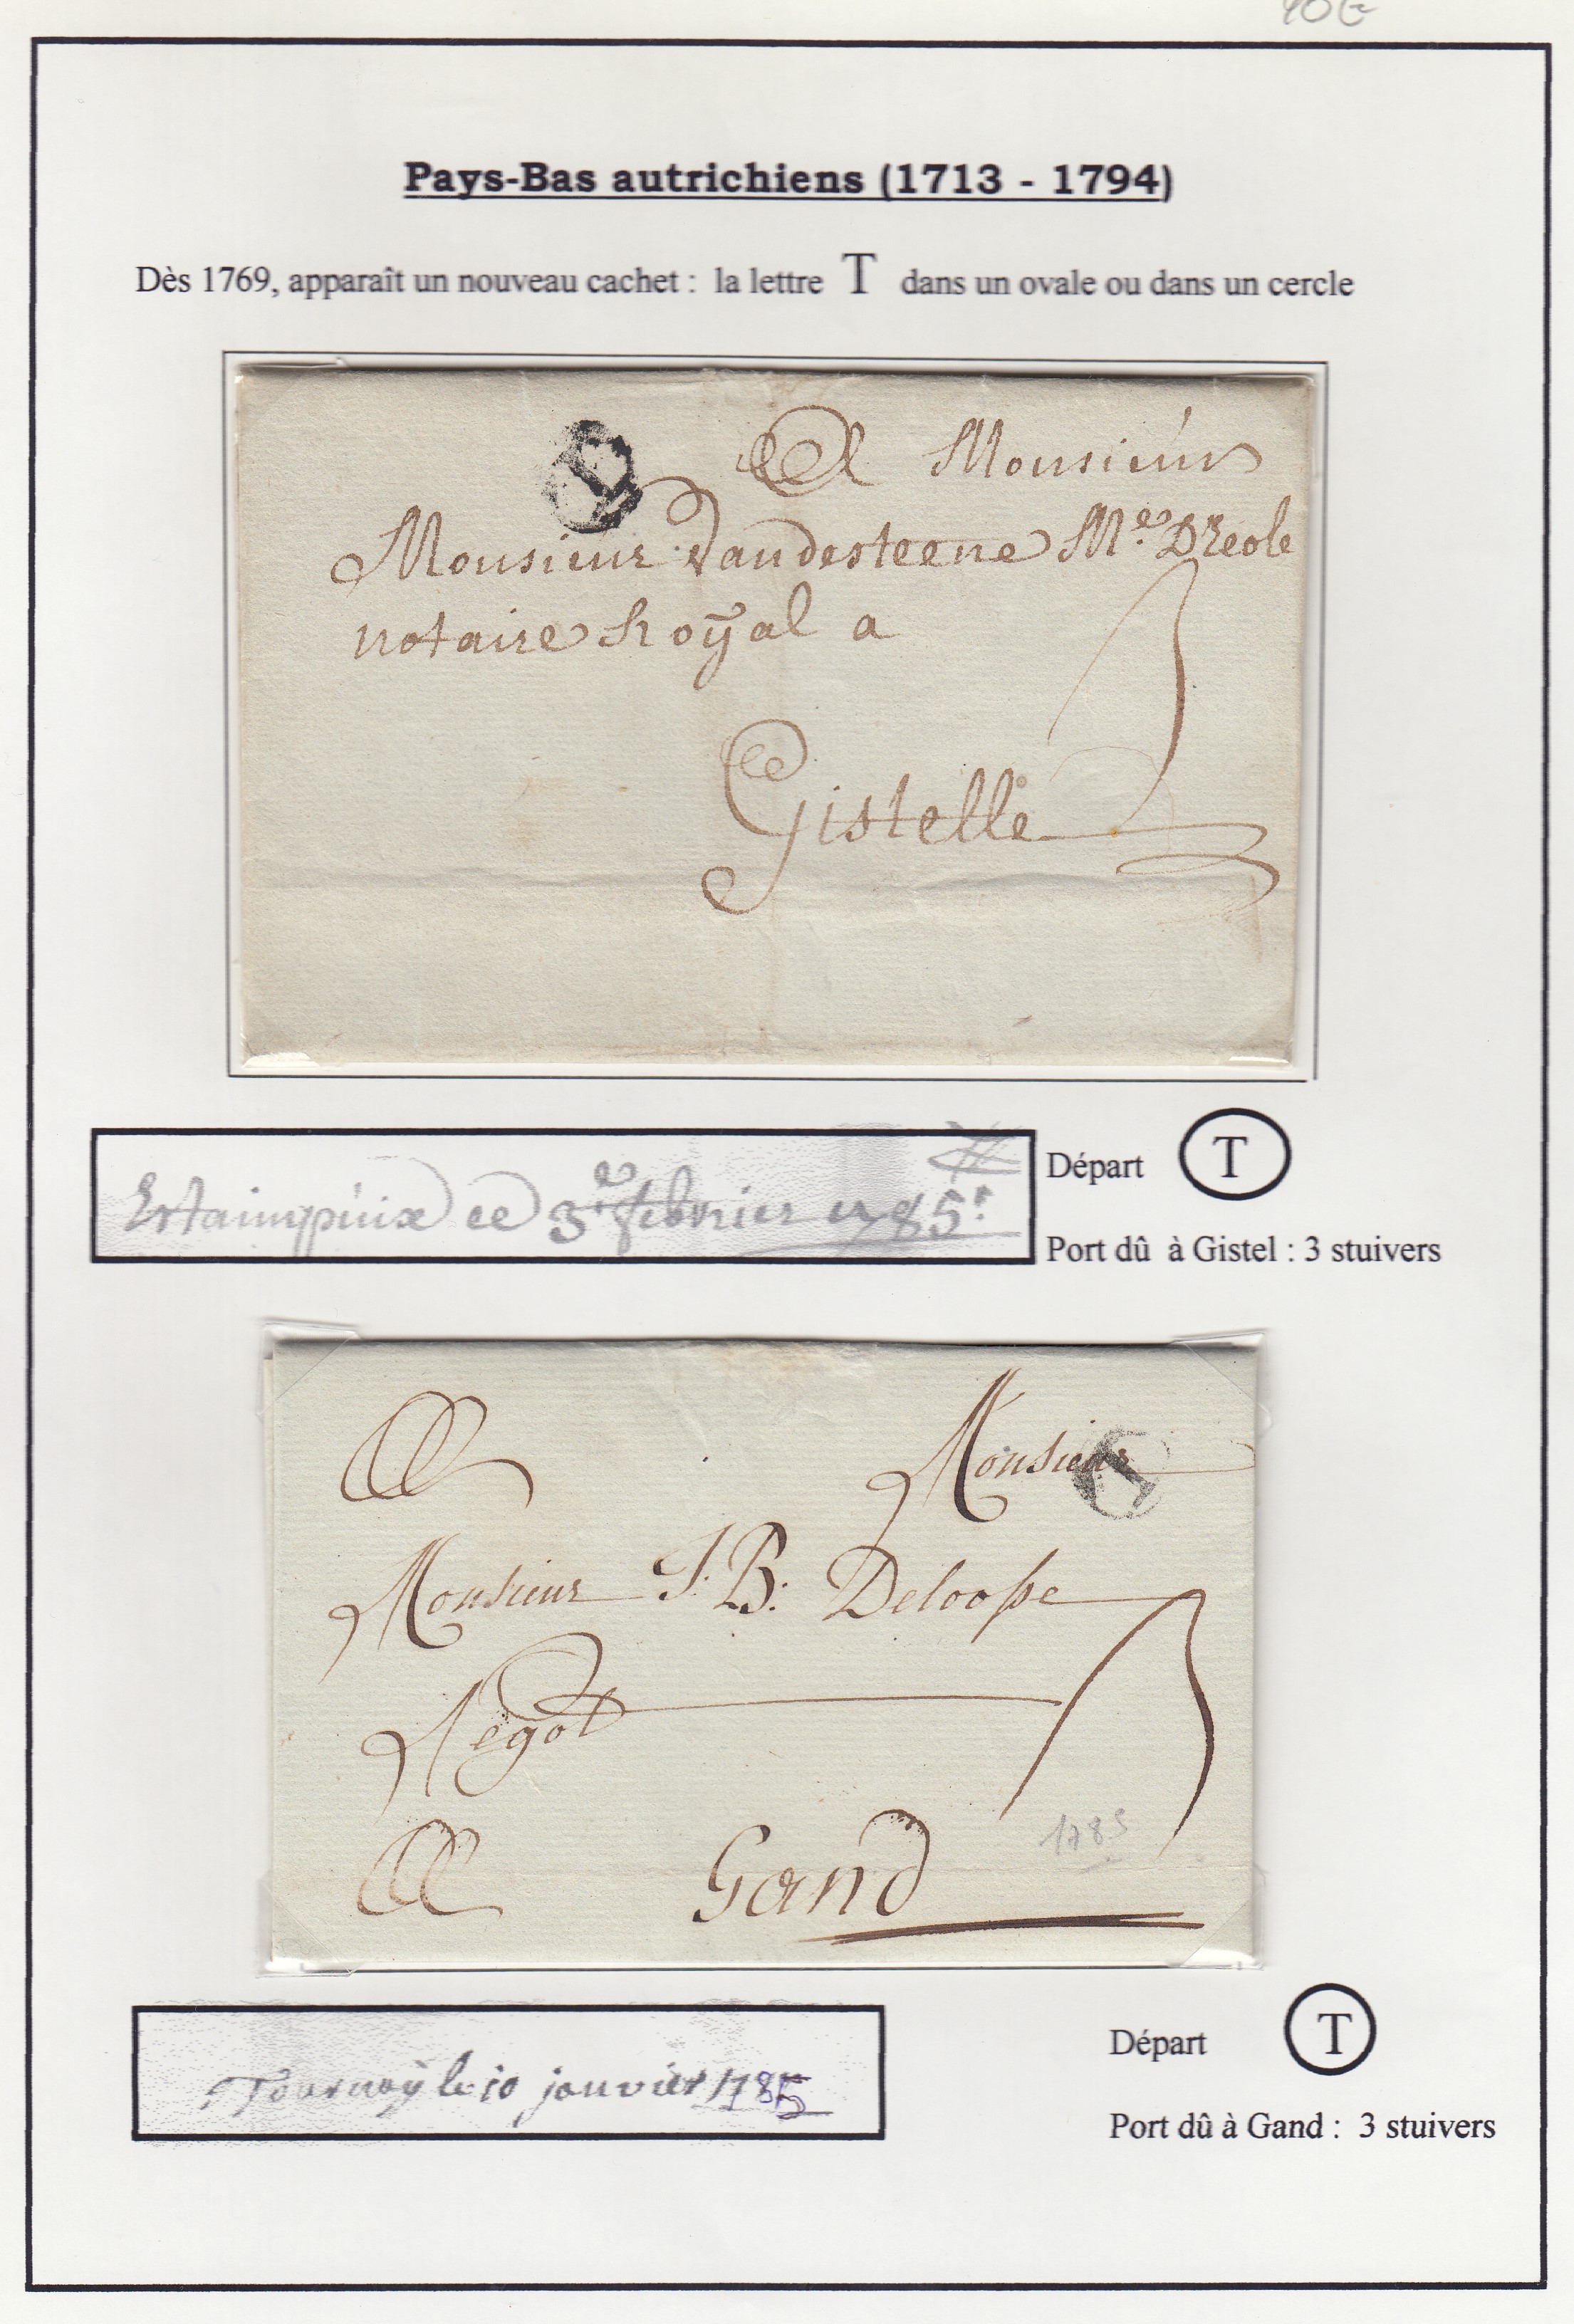 10 €
Pays-Bas autrichiens (1713 - 1794)
Dès 1769, apparaît un nouveau cachet : la lettre T dans un ovale ou dans un cercle
T
A Monsieur
Monsieur Vandesteene Me. D'Ecole
notaire Royal a
Gistelle
3
Estaimpuix ce 3e. febvrier 1785.
Départ T
Port dû à Gistel : 3 stuivers
A Monsieur
T
Monsieur J. B. Deloose
Negot
3
1785
A Gand
Tournay le 10 janvier 1785
Départ T
Port dû à Gand : 3 stuivers